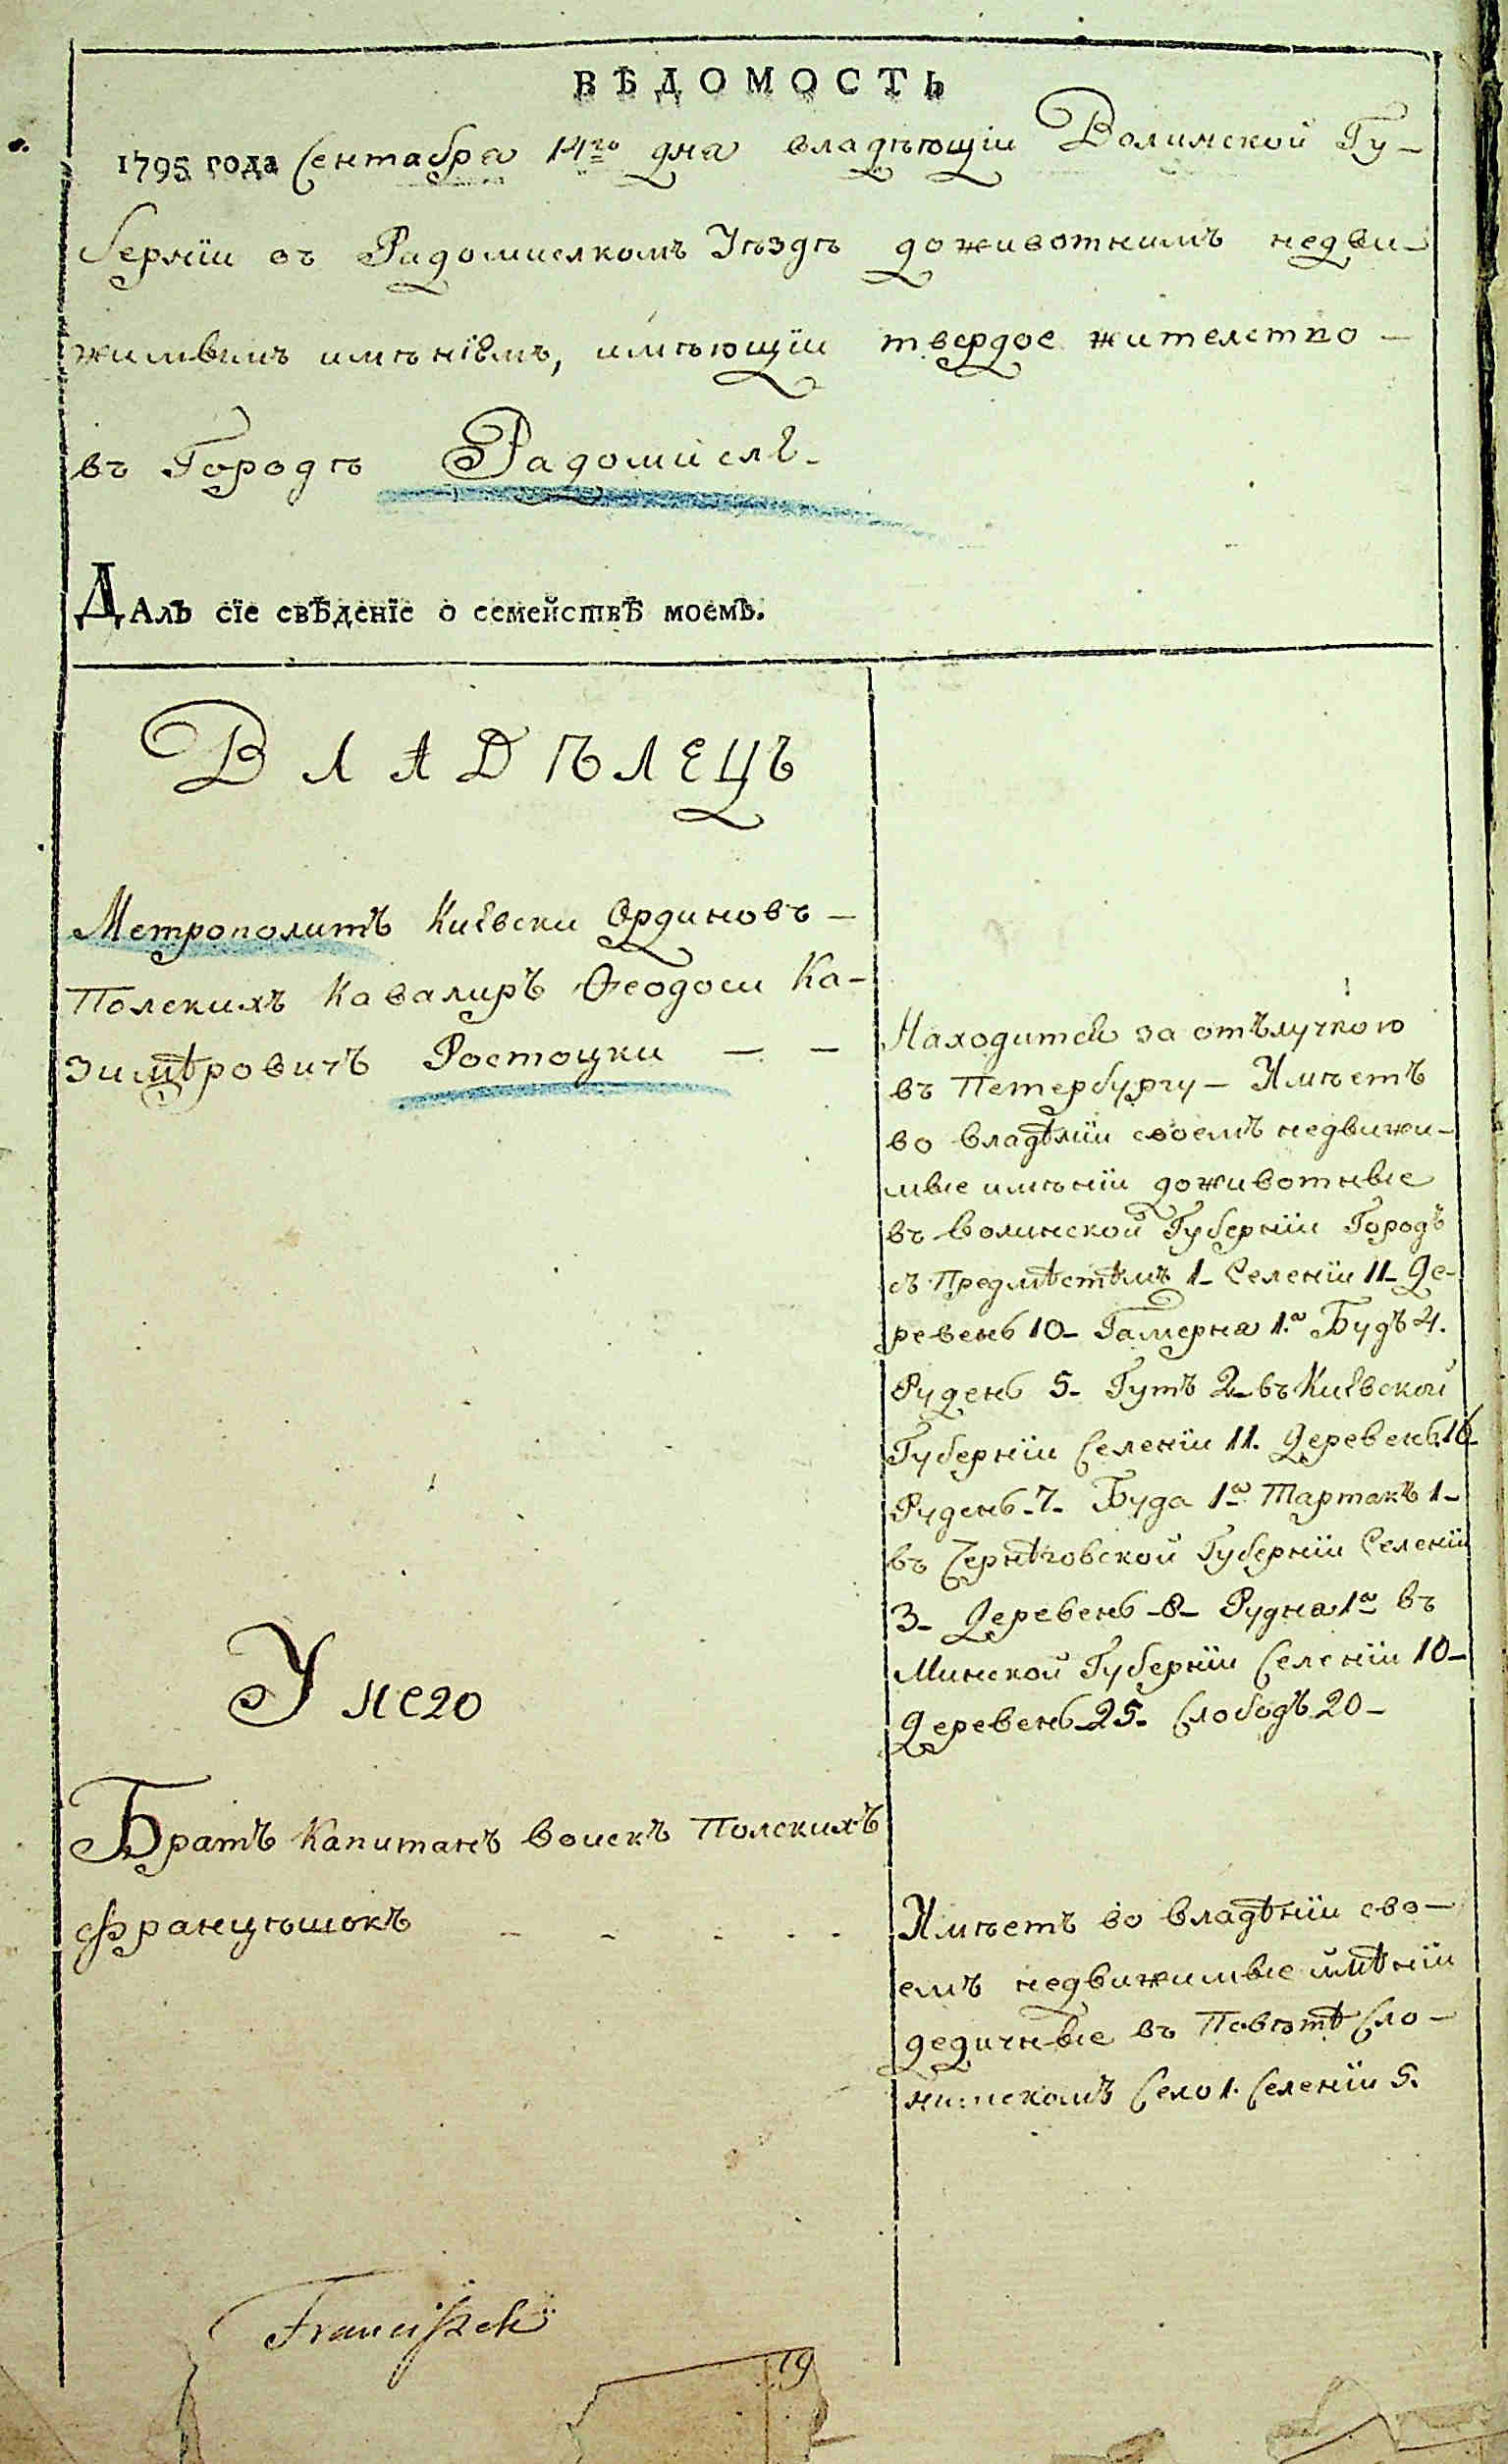 ВѢДОМОСТЬ
1795 года Сентабра 14го дна владѣющіи Волинской Гу-
берніи въ Радомислкомъ Уѣздѣ доживотнимъ недви-
жимымъ имѣніемъ, имѣющіи твердое жителство -
въ Городѣ Радомислѣ.
ДАлъ сїе свѣденїе о семействѣ моемъ.
ВЛАДѢЛЕЦЪ
Метрополитъ Киевски Ординовъ -
Полскихъ Кавалиръ Ѳеодоси Ка-
зимѣровичъ Ростоцки - -
Находится за отълучкою
въ Петербургу - Имѣетъ
во владѣніи своемъ недвижи-
мые имѣніи доживотные
въ Волинской Губерніи Городъ
съ Предмѣстѣмъ 1- Селеніи 11- Де-
ревень 10- Гамерна 1.а Будъ 4.
Рудень 5- Гутъ 2- въ Киевской
Губерніи Селеніи 11. Деревень 16-
Рудень 7- Буда 1а Тартакъ 1-
въ Чернѣговской Губерніи Селеніи
3- Деревень -8- Рудна 1а въ
Минской Губерніи Селеніи 10-
Деревень 25. Слободъ 20-
У него
Братъ Капитанъ Воискъ Полскихъ
Францѣшокъ - - - - -
Имѣетъ во владѣніи сво-
емъ недвижимые имѣніи
дедичные въ Повѣтѣ Сло-
нимскомъ Село 1. Селеніи 5.
Franciszek
19